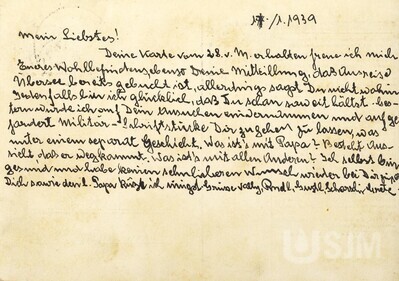 17./1.1939
Mein Liebstes!
Deine Karte vom 28. v. M. erhalten freue ich mich
Eueres Wohlbefindens ebenso Deine Mitteilung, daß Ausreise
Übersee bereits gebucht ist, allerdings sagst Du nicht wohin
Jedenfalls bin ich glücklich, daß Du schon soweit hältst. Ge-
stern wurde ich auf Dein Ansuchen einvernommen und auf-
fordert Militär-Schriftstücke Dir zugehen zu lassen, was
unter einem separat Geschieht. Was ist's mit Papa? Besteht Aus-
sicht das er wegkommt. Was ist's mit allen Anderen? Ich selbst bin
gesund und habe keinen sehnlicheren Wunsch wieder bei Dir
Dich sowie den l. Papa küsst ich innigst Grüsse
USJM